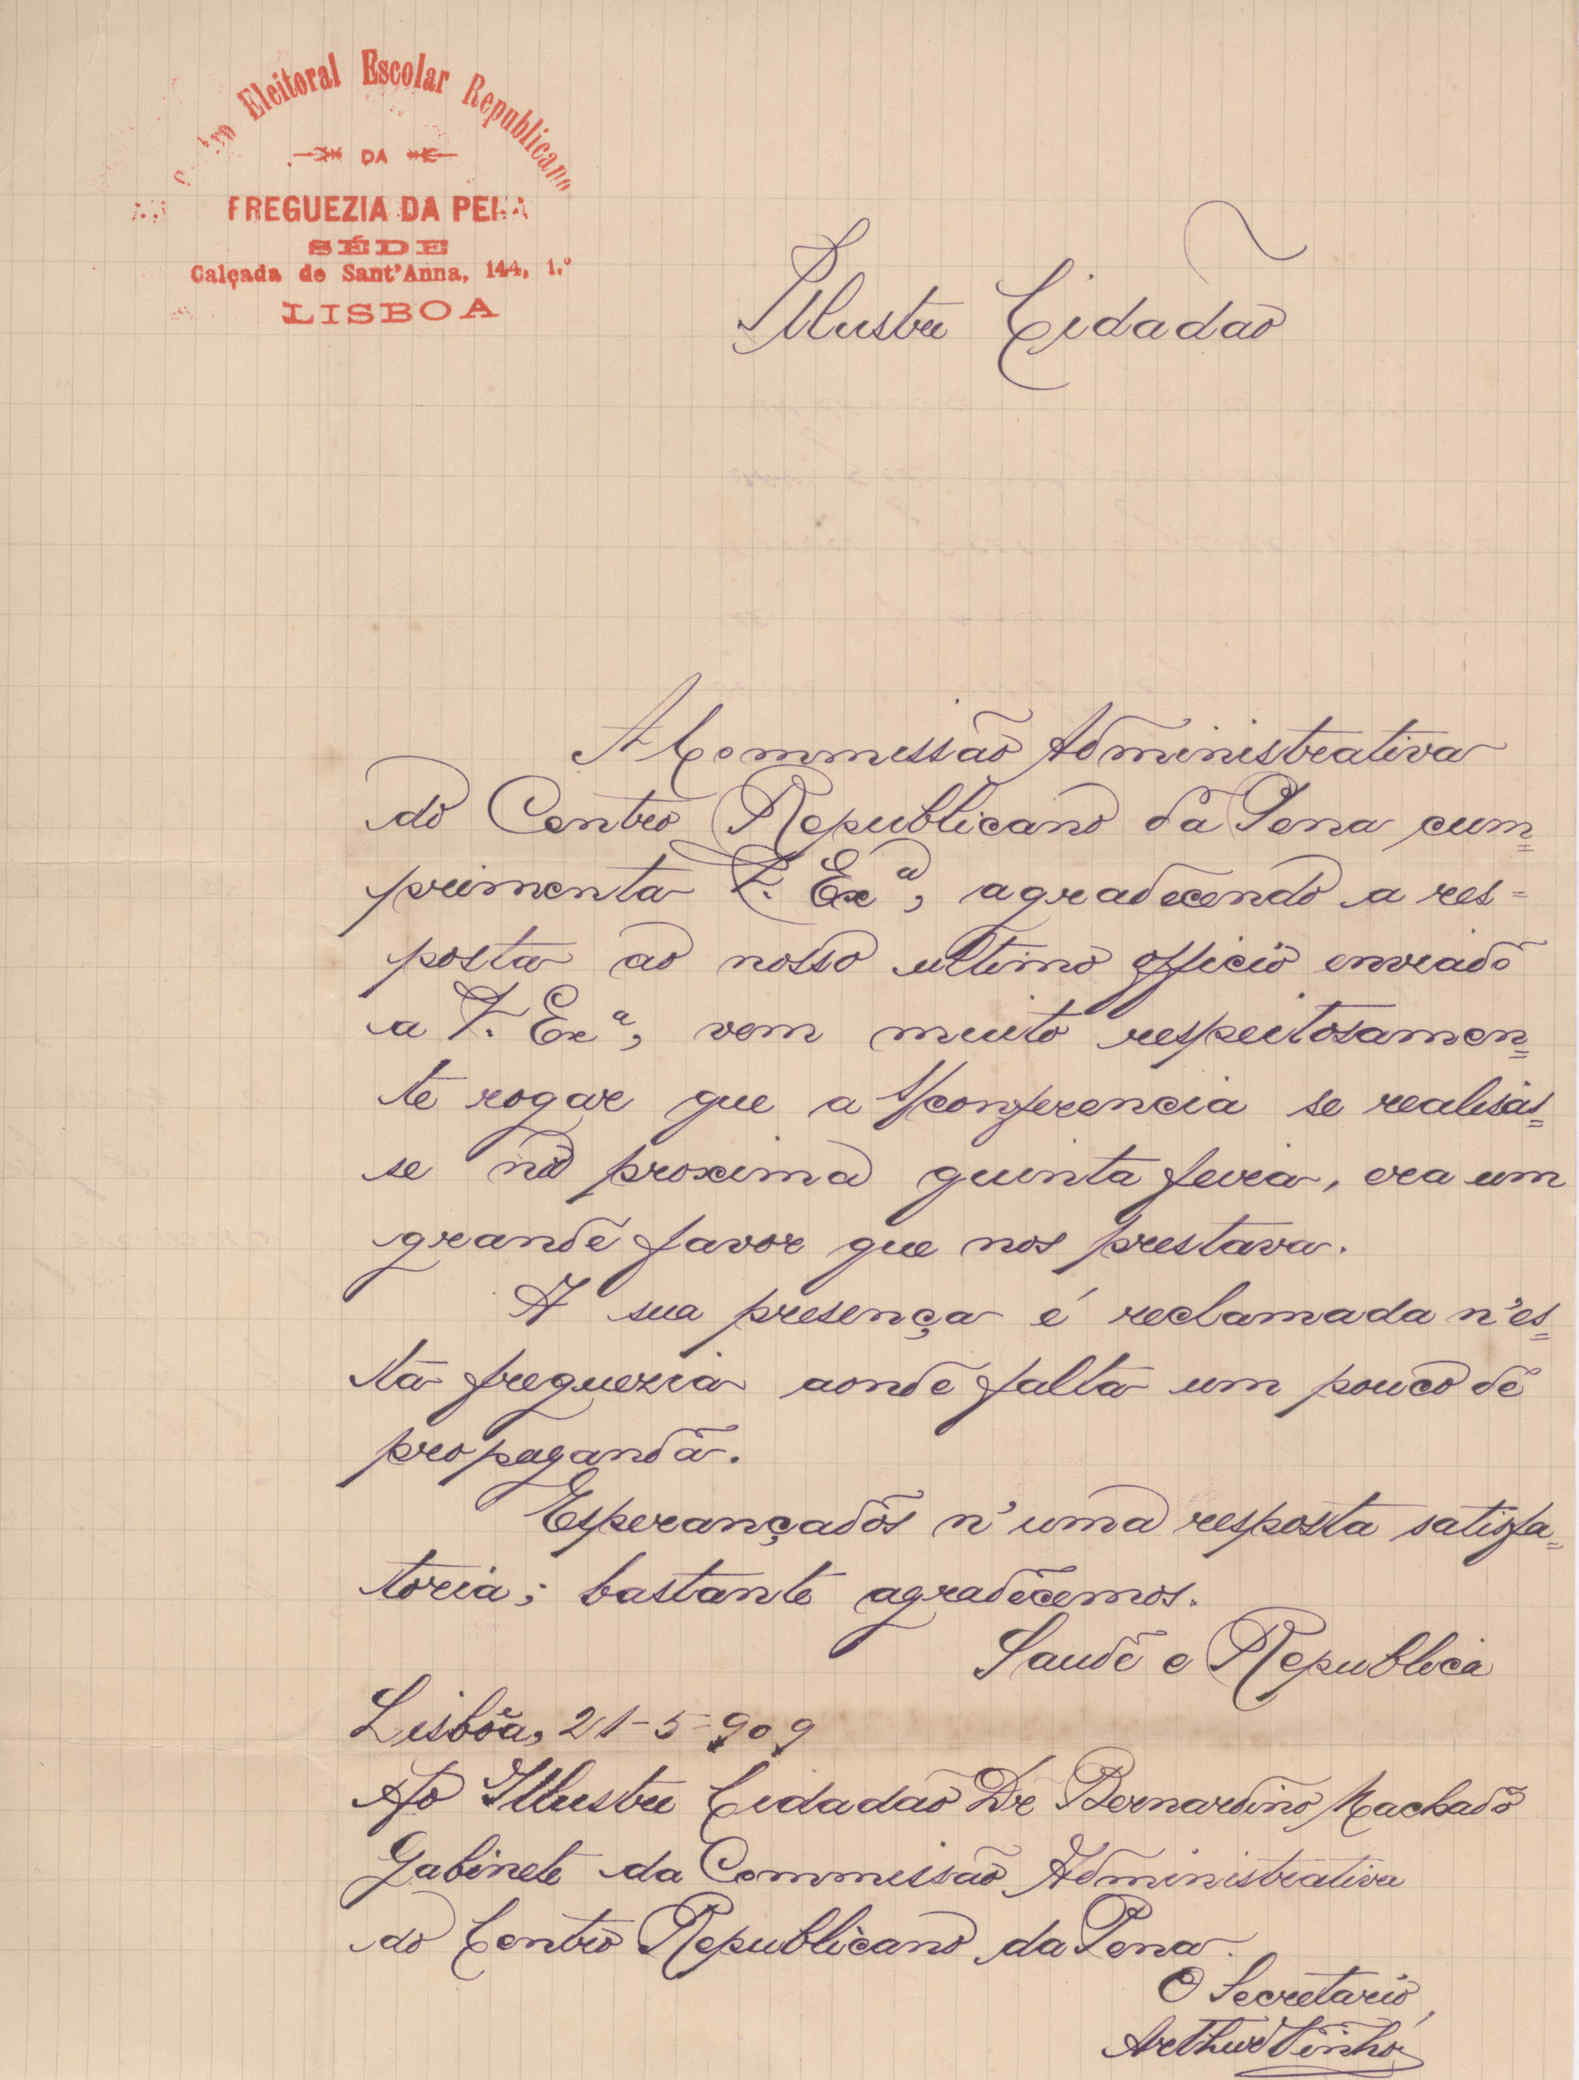 Eleitoral Escolar Republicano
DA
FREGUEZIA DA PENA
SÉDE
Calçada de Sant'Anna, 144, 1.º
LISBOA
Illustre Cidadão
A Commissão Administrativa
do Centro Republicano da Pena cum=
primenta V. Exª, agradecendo a res=
posta ao nosso ultimo officio enviado
a V. Exª, vem muito respeitosamen=
te rogar que a conferencia se realisas=
se na proxima quinta feira, era um
grande favor que nos prestava.
A sua presença é reclamada n'es=
ta freguezia aonde falta um pouco de
propaganda.
Esperançados n'uma resposta satisfa=
toria; bastante agradecemos.
Saude e Republica
Lisbôa, 21-5-909
Ao Illustre Cidadão Dr Bernardino Machado
Gabinete da Commissão Administrativa
do Centro Republicano da Pena.
O Secretario,
Arthur